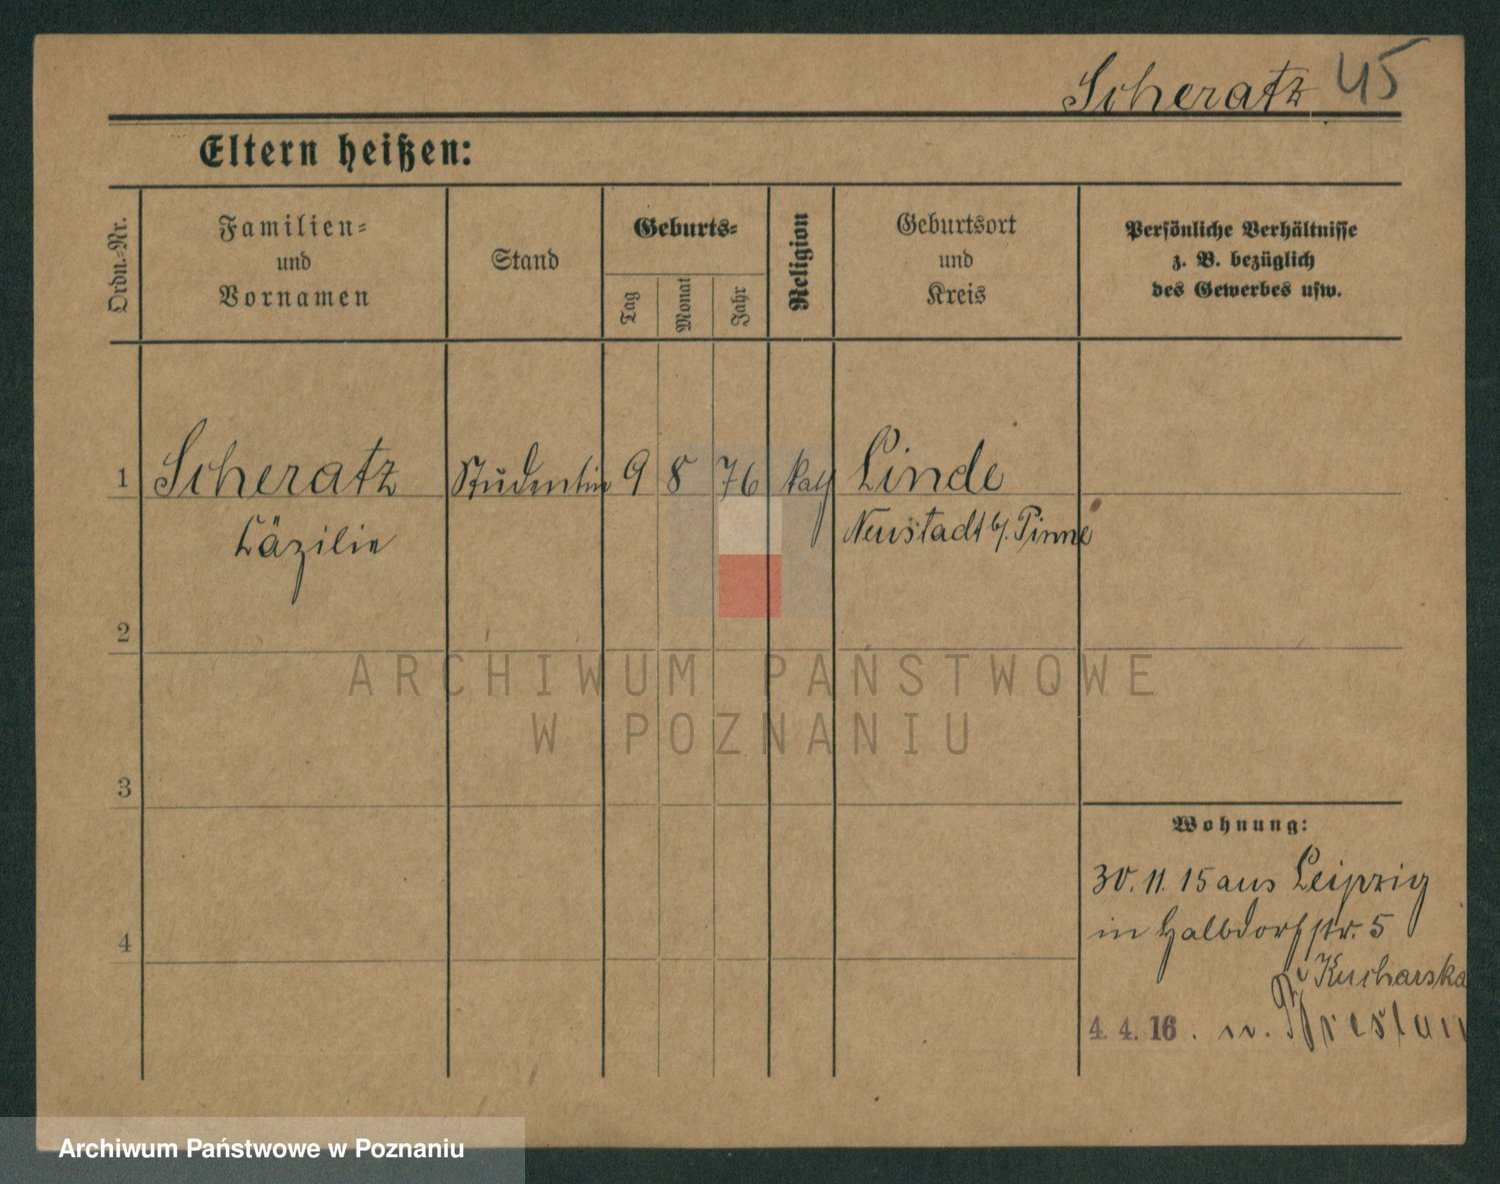 Scheratz 45
Eltern heißen:
Ordn.-Nr.
Familien-
und
Vornamen
Stand
Geburts-
Tag
Monat
Jahr
Religion
Geburtsort
und
Kreis
Persönliche Verhältnisse
z. B. bezüglich
des Gewerbes usw.
1 Scheratz Studentin 9 8 76 kath Linde
Cäzilie Neustadt b/. Pinne
2
ARCHIWUM PAŃSTWOWE
W POZNANIU
3
Wohnung:
30. 11. 15 aus Leipzig
in Halbdorfstr. 5
4
Kucharska
4. 4. 16. n. Breslau
Archiwum Państwowe w Poznaniu